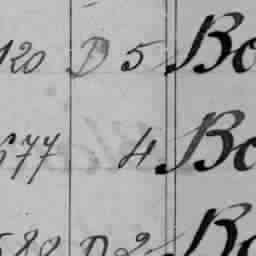 120 D 5 Bo
677 4 Bo
588 D 2 Bo